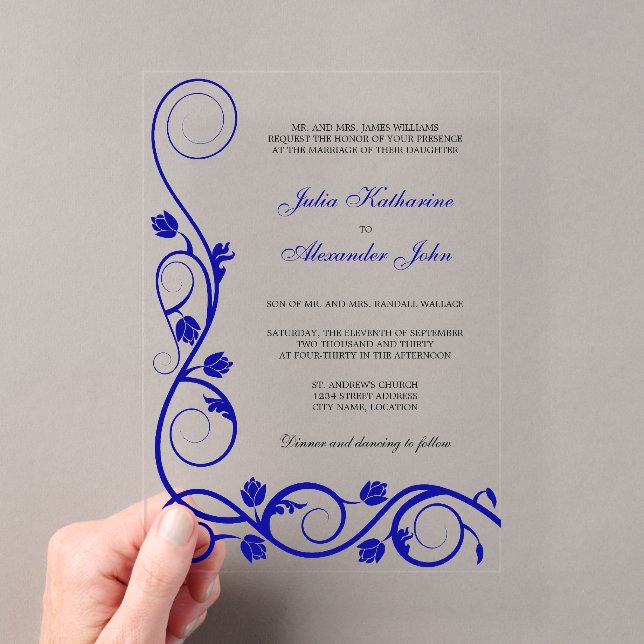 MR. AND MRS. JAMES WILLIAMS
REQUEST THE HONOR OF YOUR PRESENCE
AT THE MARRIAGE OF THEIR DAUGHTER
Julia Katharine
TO
Alexander John
SON OF MR. AND MRS. RANDALL WALLACE
SATURDAY, THE ELEVENTH OF SEPTEMBER
TWO THOUSAND AND THIRTY
AT FOUR-THIRTY IN THE AFTERNOON
ST. ANDREW'S CHURCH
1234 STREET ADDRESS
CITY NAME, LOCATION
Dinner and dancing to follow